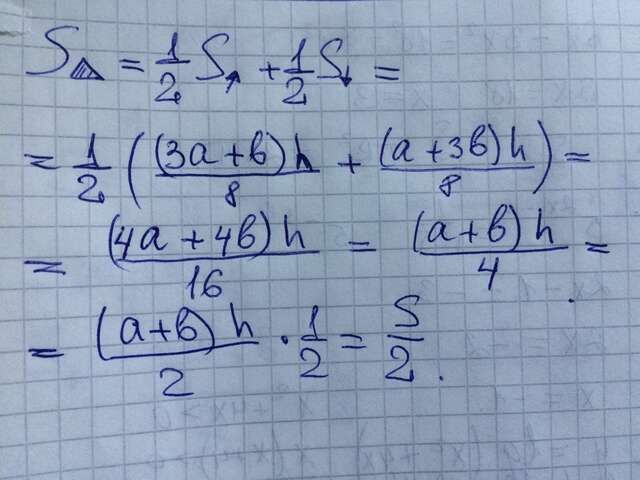 S▲ = 1/2 S↑ + 1/2 S↓ =
= 1/2 ( (3a+b)h/8 + (a+3b)h/8 ) =
= (4a+4b)h/16 = (a+b)h/4 =
= (a+b)h/2 · 1/2 = S/2 .